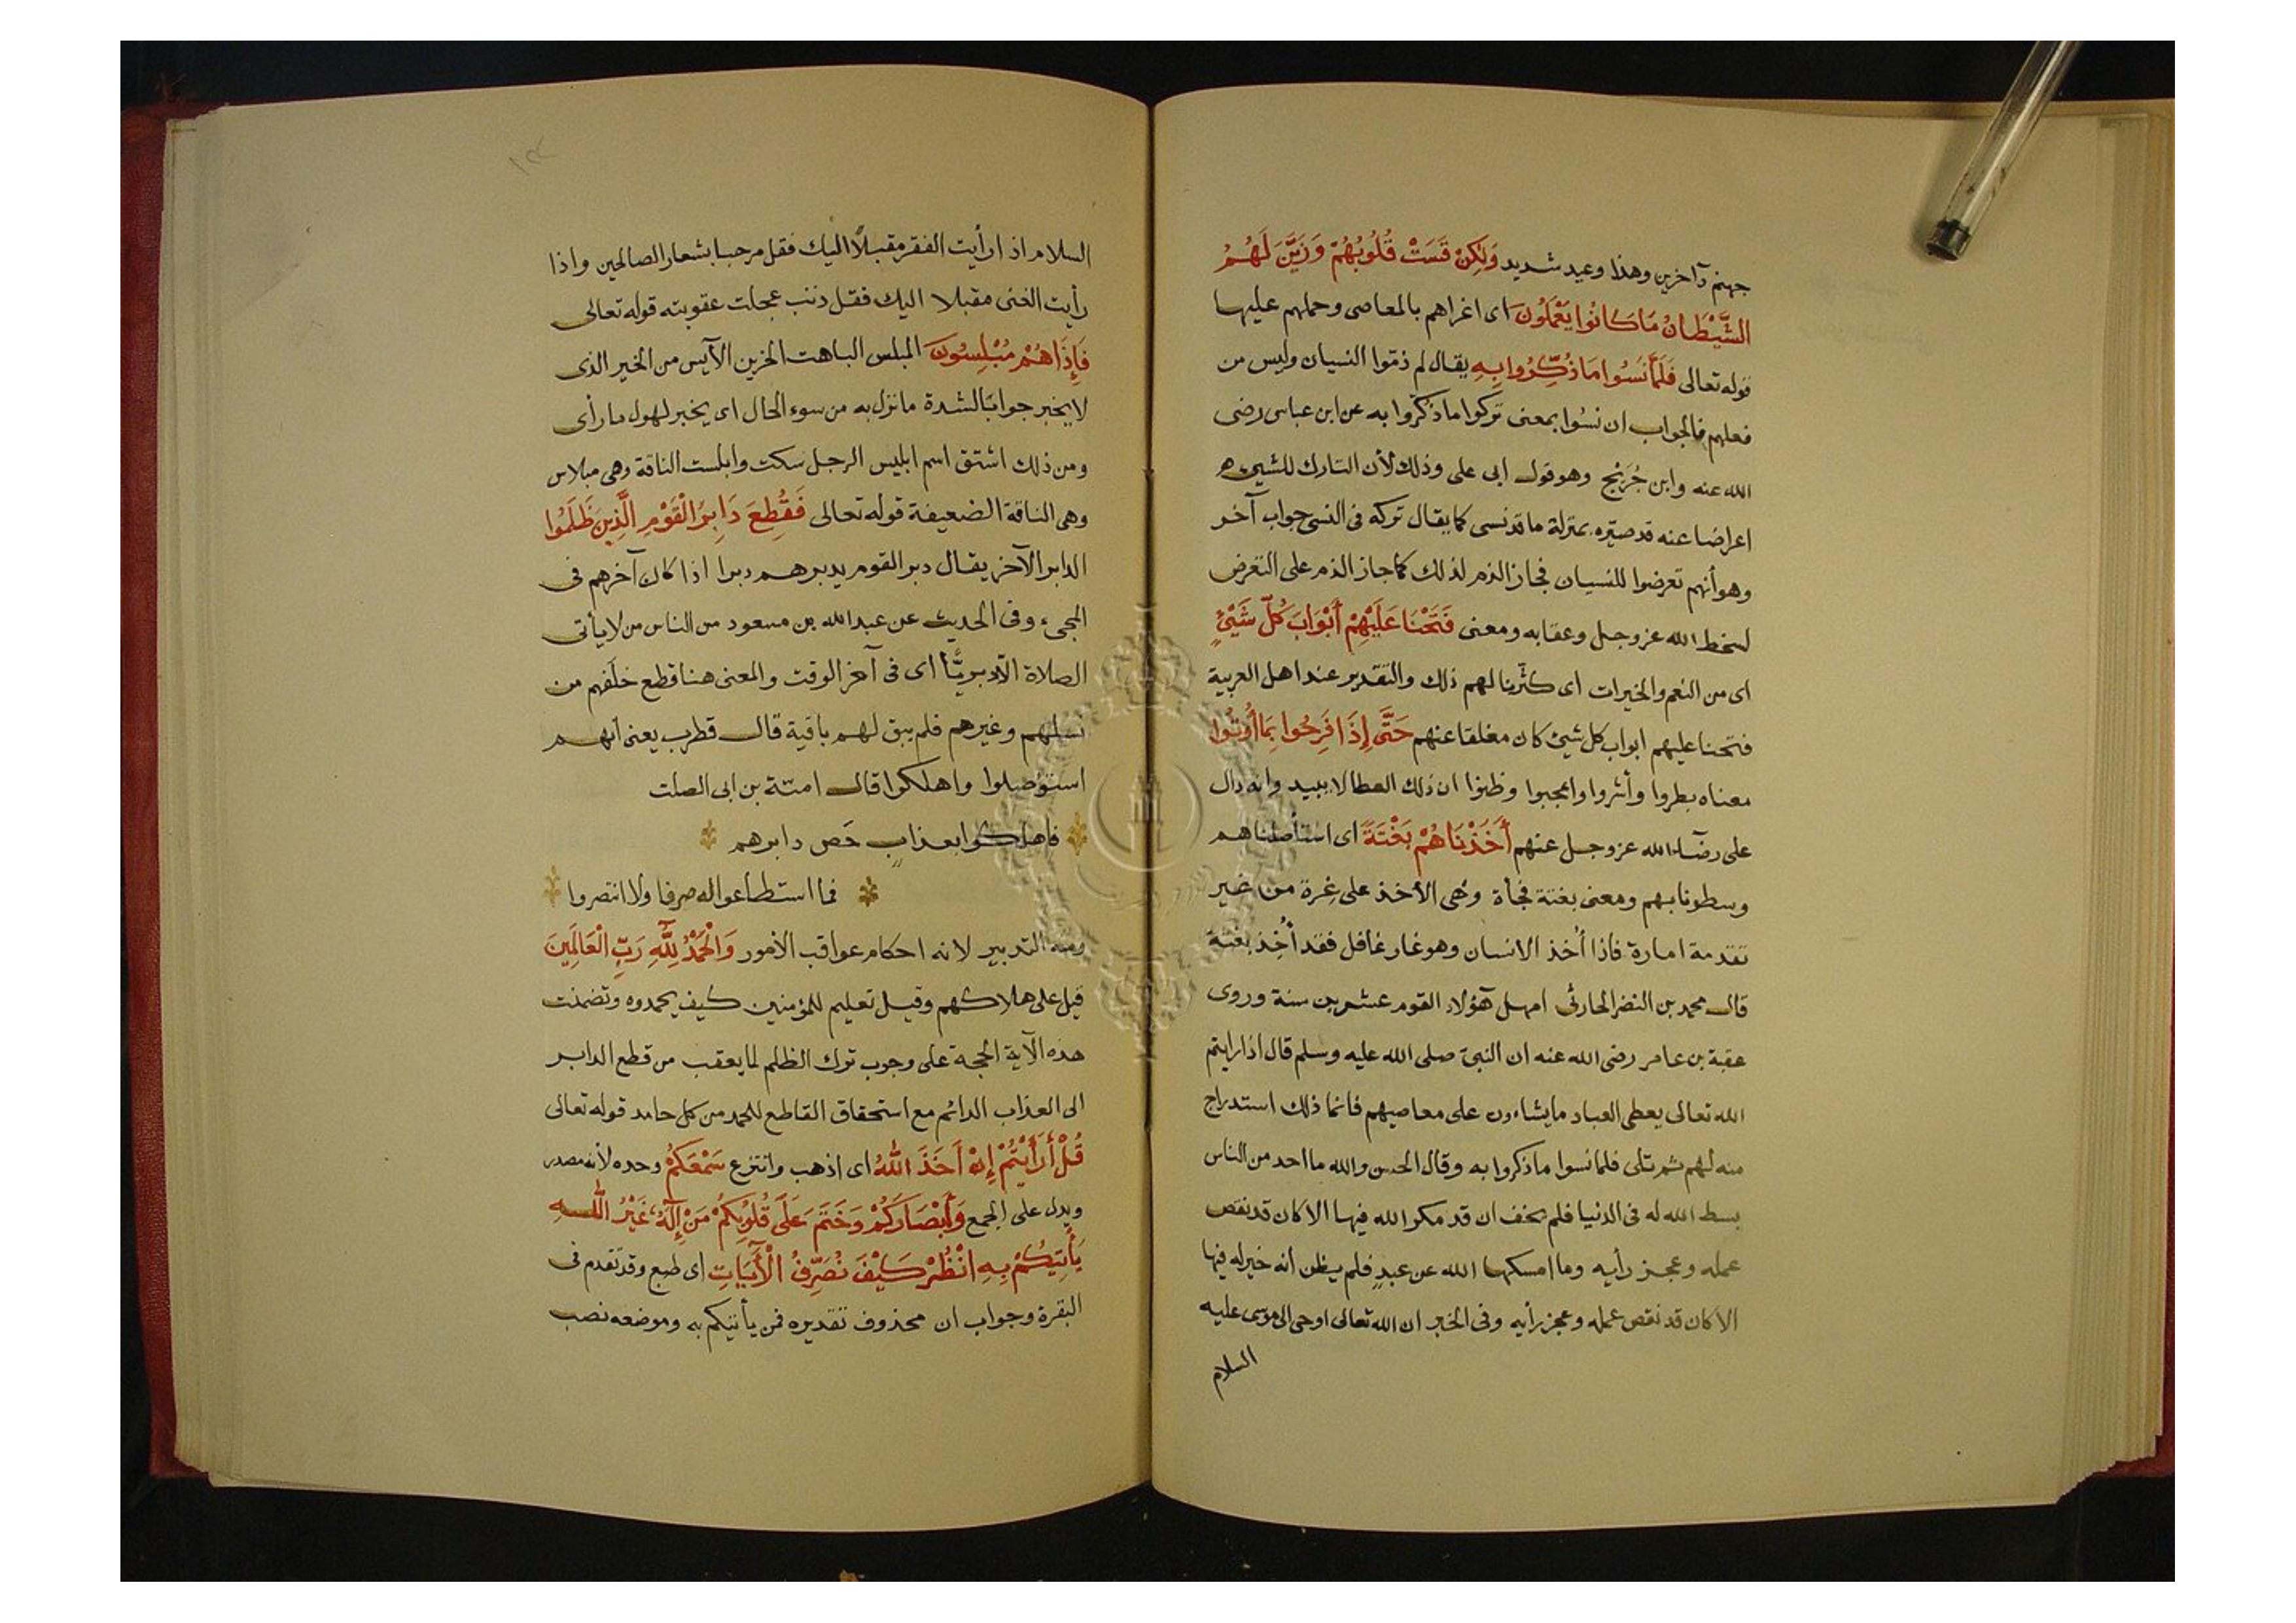 جهنم داخرين وهذا وعيد شديد وَلَكِنْ قَسَتْ قُلُوبُهُمْ وَزَيَّنَ لَهُمُ
الشَّيْطَانُ مَا كَانُوا يَعْمَلُونَ اى اغراهم بالمعاصى وحملهم عليها
قوله تعالى فَلَمَّا نَسُوا مَا ذُكِّرُوا بِهِ يقال لم ذمّوا النسيان وليس من
فعلهم فالجواب ان نسُوا بمعنى تركوا ما ذكّروا به عن ابن عباس رضى
الله عنه وابن جُرَيْج وهو قول ابى على وذلك لأن التارك للشيىء
اعراضا عنه قد صيّره بمنزلة ما قد نسى كما يقال تركه فى النسى جواب آخر
وهو أنهم تعرضوا للنسيان فجاز الذم لذلك كما جاز الذم على التعرض
لسخط الله عز وجل وعقابه ومعنى فَتَحْنَا عَلَيْهِمْ أَبْوَابَ كُلِّ شَيْئٍ
اى من النعم والخيرات اى كثّرنا لهم ذلك والتقدير عند اهل العربية
فتحنا عليهم ابواب كل شيئ كان مغلقا عنهم حَتَّى إِذَا فَرِحُوا بِمَا أُوتُوا
معناه بطروا وأشروا واعجبوا وظنوا ان ذلك العطا لا يبيد وانه دال
على رضاء الله عز وجل عنهم أَخَذْنَاهُمْ بَغْتَةً اى استأصلناهم
وسطونا بهم ومعنى بغتة فجأة وهى الأخذ على غرة من غير
تقدمة امارة فاذا أُخذ الانسان وهو غار غافل فقد أُخِذ بغتة
قال محمد بن النضر الحارثى امهل هؤلاء القوم عشرين سنة وروى
عقبة بن عامر رضى الله عنه ان النبىّ صلى الله عليه وسلم قال اذا رايتم
الله تعالى يعطى العباد ما يشاءون على معاصيهم فانما ذلك استدراج
منه لهم ثم تلى فلما نسوا ما ذكروا به وقال الحسن والله ما احد من الناس
بسط الله له فى الدنيا فلم يخف ان قد مكر الله فيها الا كان قد نقص
عمله وعجز رأيه وما امسكها الله عن عبدٍ فلم يظن انه خير له فيها
الا كان قد نقص عمله وعجز رأيه وفى الخبر ان الله تعالى اوحى الى موسى عليه
السلام
١٣٢
السلام اذا رأيت الفقر مقبلًا اليك فقل مرحبا بشعار الصالحين واذا
رأيت الغنى مقبلا اليك فقل ذنب عجلت عقوبته قوله تعالى
فَإِذَا هُمْ مُبْلِسُونَ المبلس الباهت الحزين الآيس من الخير الذى
لا يخبر جوابًا لشدة ما نزل به من سوء الحال اى يخبر لهول ما رأى
ومن ذلك اشتق اسم ابليس الرجل سكت وابلست الناقة وهى مبلاس
وهى الناقة الضعيفة قوله تعالى فَقُطِعَ دَابِرُ الْقَوْمِ الَّذِينَ ظَلَمُوا
الدابر الآخر يقال دبر القوم يدبرهم دبرا اذا كان آخرهم فى
المجىء وفى الحديث عن عبد الله بن مسعود من الناس من لا يأتى
الصلاة الّا دبريًّا اى فى آخر الوقت والمعنى هنا قطع خلفهم من
نسلهم وغيرهم فلم يبق لهم باقية قال قطرب يعنى انهم
استؤصلوا واهلكوا قال امية بن ابى الصلت
فاهلكوا بعذابٍ حَص دابرهم
فما استطاعوا له صرفا ولا انتصروا
ومنه التدبير لانه احكام عواقب الأمور وَالْحَمْدُ لِلَّهِ رَبِّ الْعَالَمِينَ
قيل على هلاكهم وقيل تعليم للمؤمنين كيف يحمدوه وتضمنت
هذه الآية الحجة على وجوب ترك الظلم لما يعقب من قطع الدابر
الى العذاب الدائم مع استحقاق القاطع للحمد من كل حامد قوله تعالى
قُلْ أَرَأَيْتُمْ إِنْ أَخَذَ اللهُ اى اذهب وانتزع سَمْعَكُمْ وحده لأنه مصدر
ويدل على الجمع وَأَبْصَارَكُمْ وَخَتَمَ عَلَى قُلُوبِكُمْ مَنْ إِلَهٌ غَيْرُ اللهِ
يَأْتِيكُمْ بِهِ انْظُرْ كَيْفَ نُصَرِّفُ الْأَيَاتِ اى طبع وقد تقدم فى
البقرة وجواب ان محذوف تقديره فمن يأتيكم به وموضعه نصب